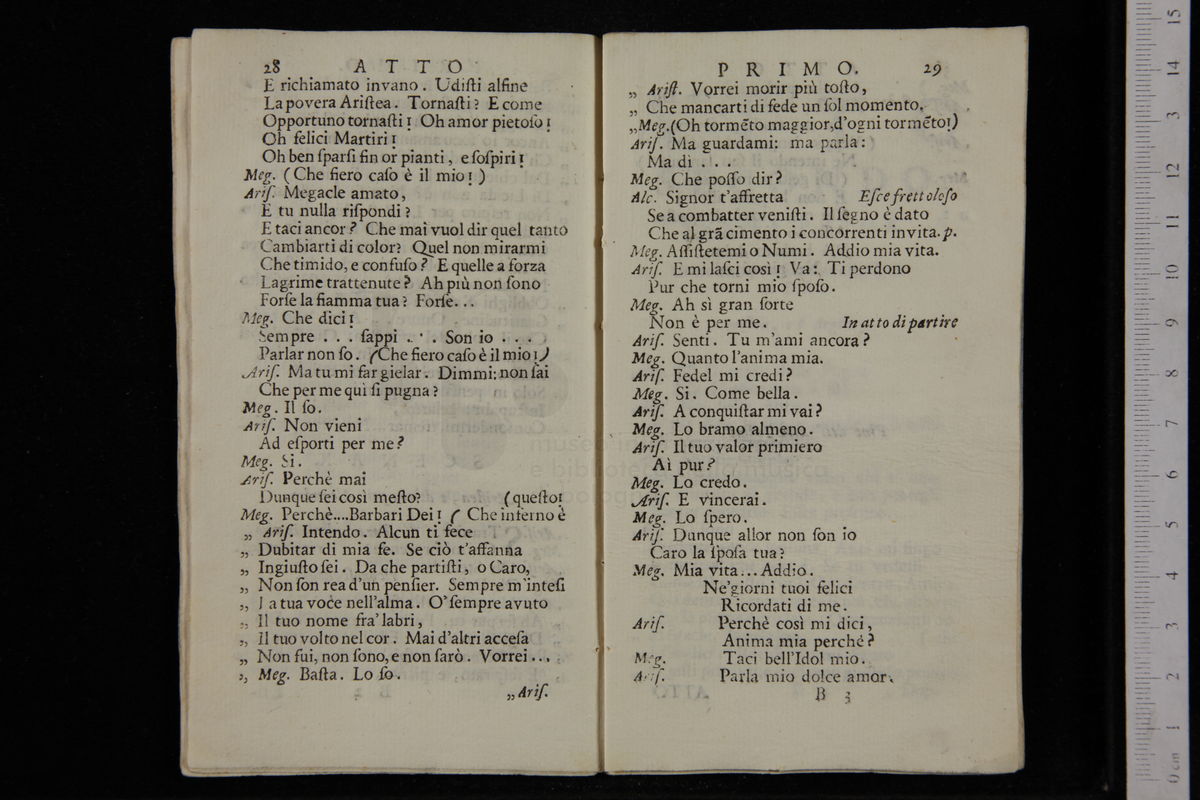 28 ATTO
E richiamato invano. Udiſti alfine
La povera Ariſtea. Tornaſti? E come
Opportuno tornaſti! Oh amor pietoſo!
Oh felici Martiri!
Oh ben ſparſi fin or pianti, e ſoſpiri!
Meg. (Che fiero caſo è il mio!)
Ariſ. Megacle amato,
E tu nulla riſpondi?
E taci ancor? Che mai vuol dir quel tanto
Cambiarti di color? Quel non mirarmi
Che timido, e confuſo? E quelle a forza
Lagrime trattenute? Ah più non ſono
Forſe la fiamma tua? Forſe...
Meg. Che dici!
Sempre ... ſappi ... Son io ...
Parlar non ſo. (Che fiero caſo è il mio!)
Ariſ. Ma tu mi far gielar. Dimmi: non ſai
Che per me quì ſi pugna?
Meg. Il ſo.
Ariſ. Non vieni
Ad eſporti per me?
Meg. Si.
Ariſ. Perchè mai
Dunque ſei così meſto? (queſto!
Meg. Perchè....Barbari Dei! ( Che inferno è
„ Ariſ. Intendo. Alcun ti fece
„ Dubitar di mia fe. Se ciò t'affanna
„ Ingiuſto ſei. Da che partiſti, o Caro,
„ Non ſon rea d'un penſier. Sempre m'inteſi
„ La tua voce nell'alma. O' ſempre avuto
„ Il tuo nome fra' labri,
„ Il tuo volto nel cor. Mai d'altri acceſa
„ Non fui, non ſono, e non ſarò. Vorrei...
„ Meg. Baſta. Lo ſo.
„ Ariſ.
PRIMO. 29
„ Ariſt. Vorrei morir più toſto,
„ Che mancarti di fede un ſol momento.
„Meg.(Oh tormẽto maggior, d'ogni tormẽto!)
Ariſ. Ma guardami: ma parla:
Ma dì ...
Meg. Che poſſo dir?
Alc. Signor t'affretta Eſce frettoloſo
Se a combatter veniſti. Il ſegno è dato
Che al grã cimento i concorrenti invita. p.
Meg. Aſſiſtetemi o Numi. Addio mia vita.
Ariſ. E mi laſci così! Va: Ti perdono
Pur che torni mio ſpoſo.
Meg. Ah sì gran ſorte
Non è per me. In atto di partire
Ariſ. Senti. Tu m'ami ancora?
Meg. Quanto l'anima mia.
Ariſ. Fedel mi credi?
Meg. Si. Come bella.
Ariſ. A conquiſtar mi vai?
Meg. Lo bramo almeno.
Ariſ. Il tuo valor primiero
Aì pur?
Meg. Lo credo.
Ariſ. E vincerai.
Meg. Lo ſpero.
Ariſ. Dunque allor non ſon io
Caro la ſpoſa tua?
Meg. Mia vita... Addio.
Ne'giorni tuoi felici
Ricordati di me.
Ariſ. Perchè così mi dici,
Anima mia perchè?
Meg. Taci bell'Idol mio.
Ariſ. Parla mio dolce amor.
B 3